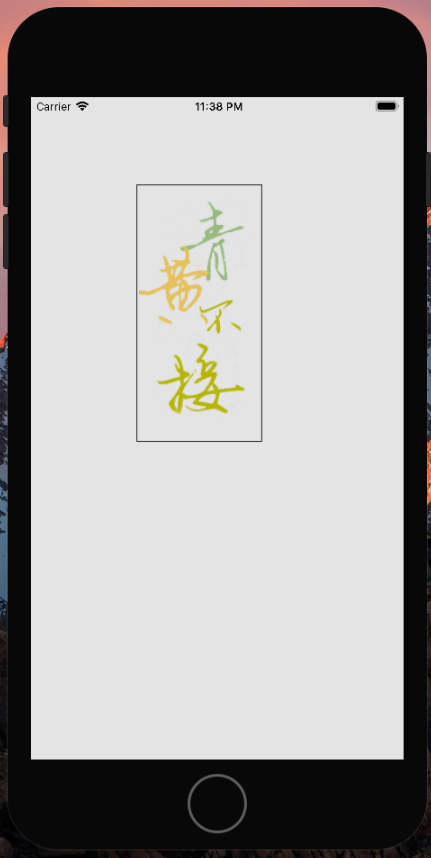 Carrier 11:38 PM
青黄不接